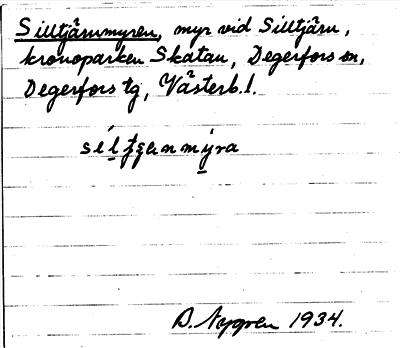 Silltjärnmyren, myr vid Silltjärn,
kronoparken Skatan, Degerfors sn,
Degerfors tg, Västerb.l.
B. Nygren 1934.